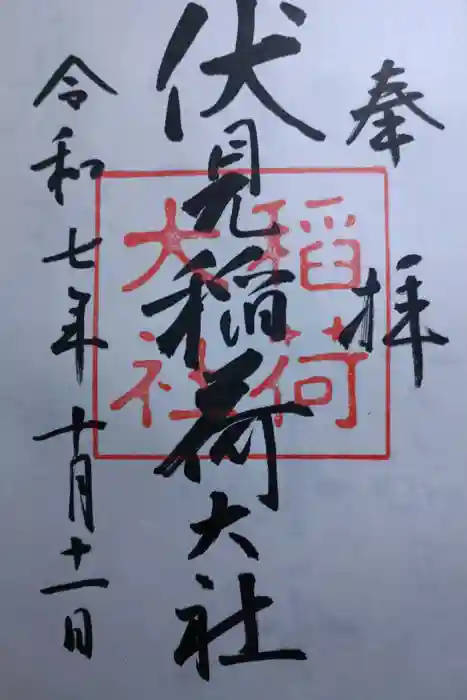 奉拝
伏見稲荷大社
稲荷
大社
令和七年十月十一日